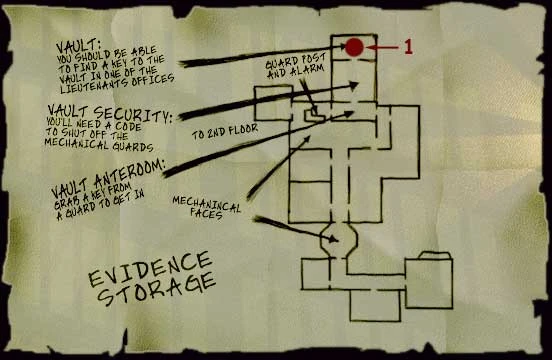 VAULT:
YOU SHOULD BE ABLE
TO FIND A KEY TO THE
VAULT IN ONE OF THE
LIEUTENANTS OFFICES
1
GUARD POST
AND ALARM
VAULT SECURITY:
YOU'LL NEED A CODE
TO SHUT OFF THE
MECHANICAL GUARDS
TO 2ND FLOOR
VAULT ANTEROOM:
GRAB A KEY FROM
A GUARD TO GET IN
MECHANINCAL
FACES
EVIDENCE
STORAGE